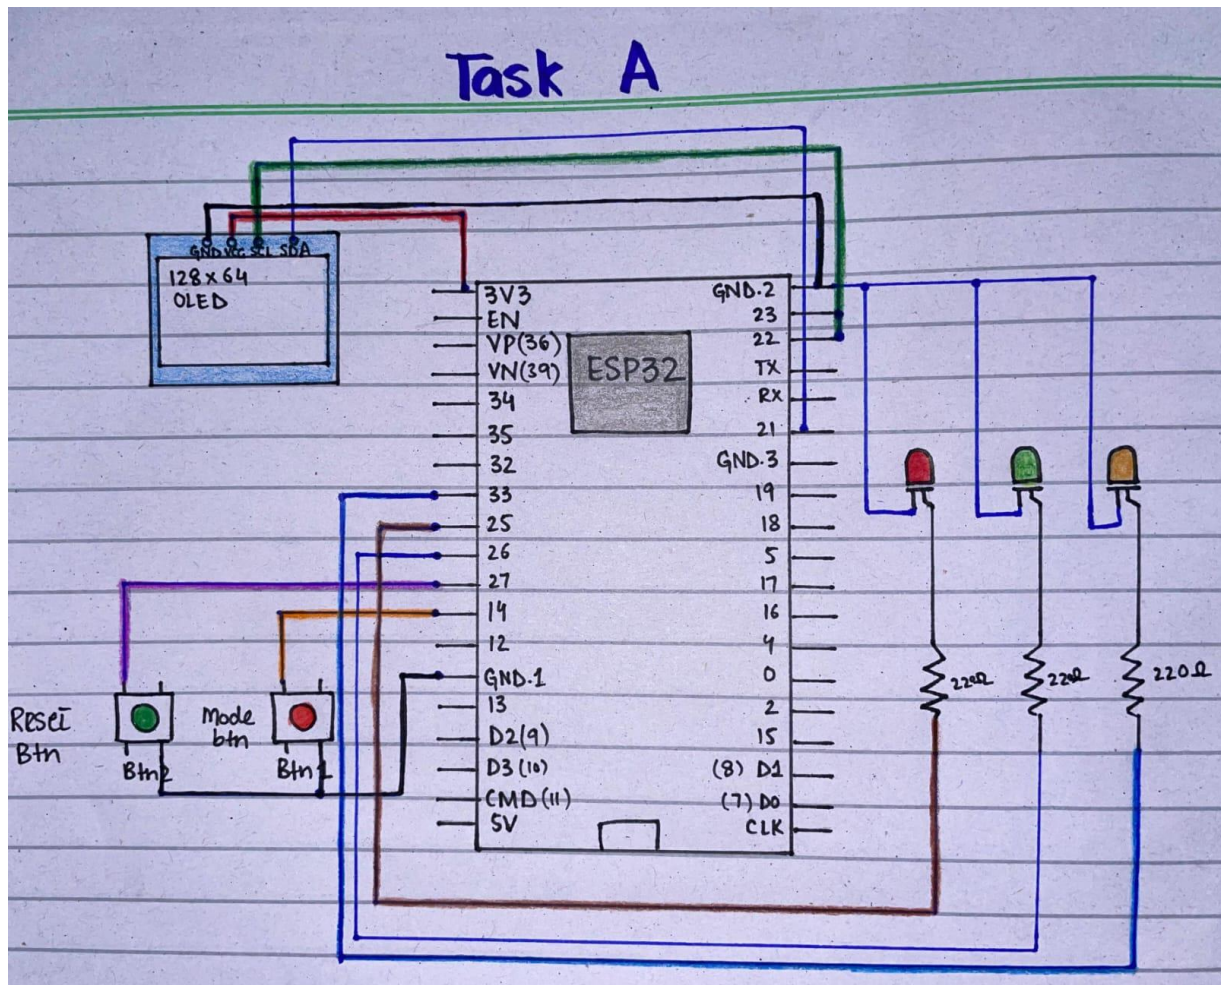 Task A
GND VCC SCL SDA
128x64
OLED
ESP32
3V3
EN
VP(36)
VN(39)
34
35
32
33
25
26
27
14
12
GND.1
13
D2(9)
D3(10)
CMD(11)
5V
GND.2
23
22
TX
RX
21
GND.3
19
18
5
17
16
4
0
2
15
(8) D1
(7) D0
CLK
220Ω
220Ω
220Ω
Reset
Btn
Btn2
Mode
btn
Btn1